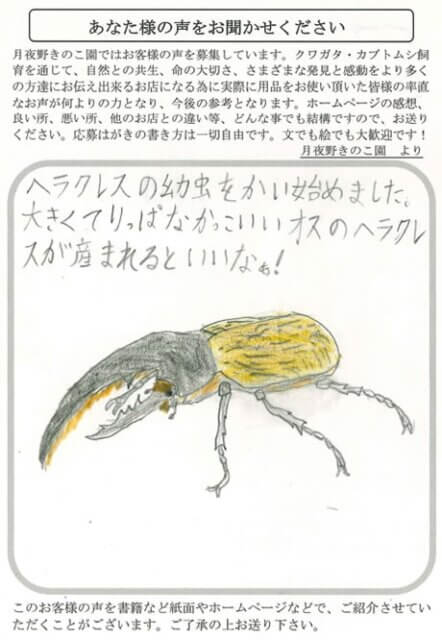 あなた様の声をお聞かせください
月夜野きのこ園ではお客様の声を募集しています。クワガタ・カブトムシ飼
育を通じて、自然との共生、命の大切さ、さまざまな発見と感動をより多く
の方達にお伝え出来るお店になる為に実際に用品をお使い頂いた皆様の率直
なお声が何よりの力となり、今後の参考となります。ホームページの感想、
良い所、悪い所、他のお店との違い等、どんな事でも結構ですので、お送り
ください。応募はがきの書き方は一切自由です。文でも絵でも大歓迎です！
月夜野きのこ園　より
ヘラクレスの幼虫をかい始めました。
大きくてりっぱなかっこいいオスのヘラクレ
スが産まれるといいなぁ!
このお客様の声を書籍など紙面やホームページなどで、ご紹介させてい
ただくことがございます。ご了承の上お送り下さい。